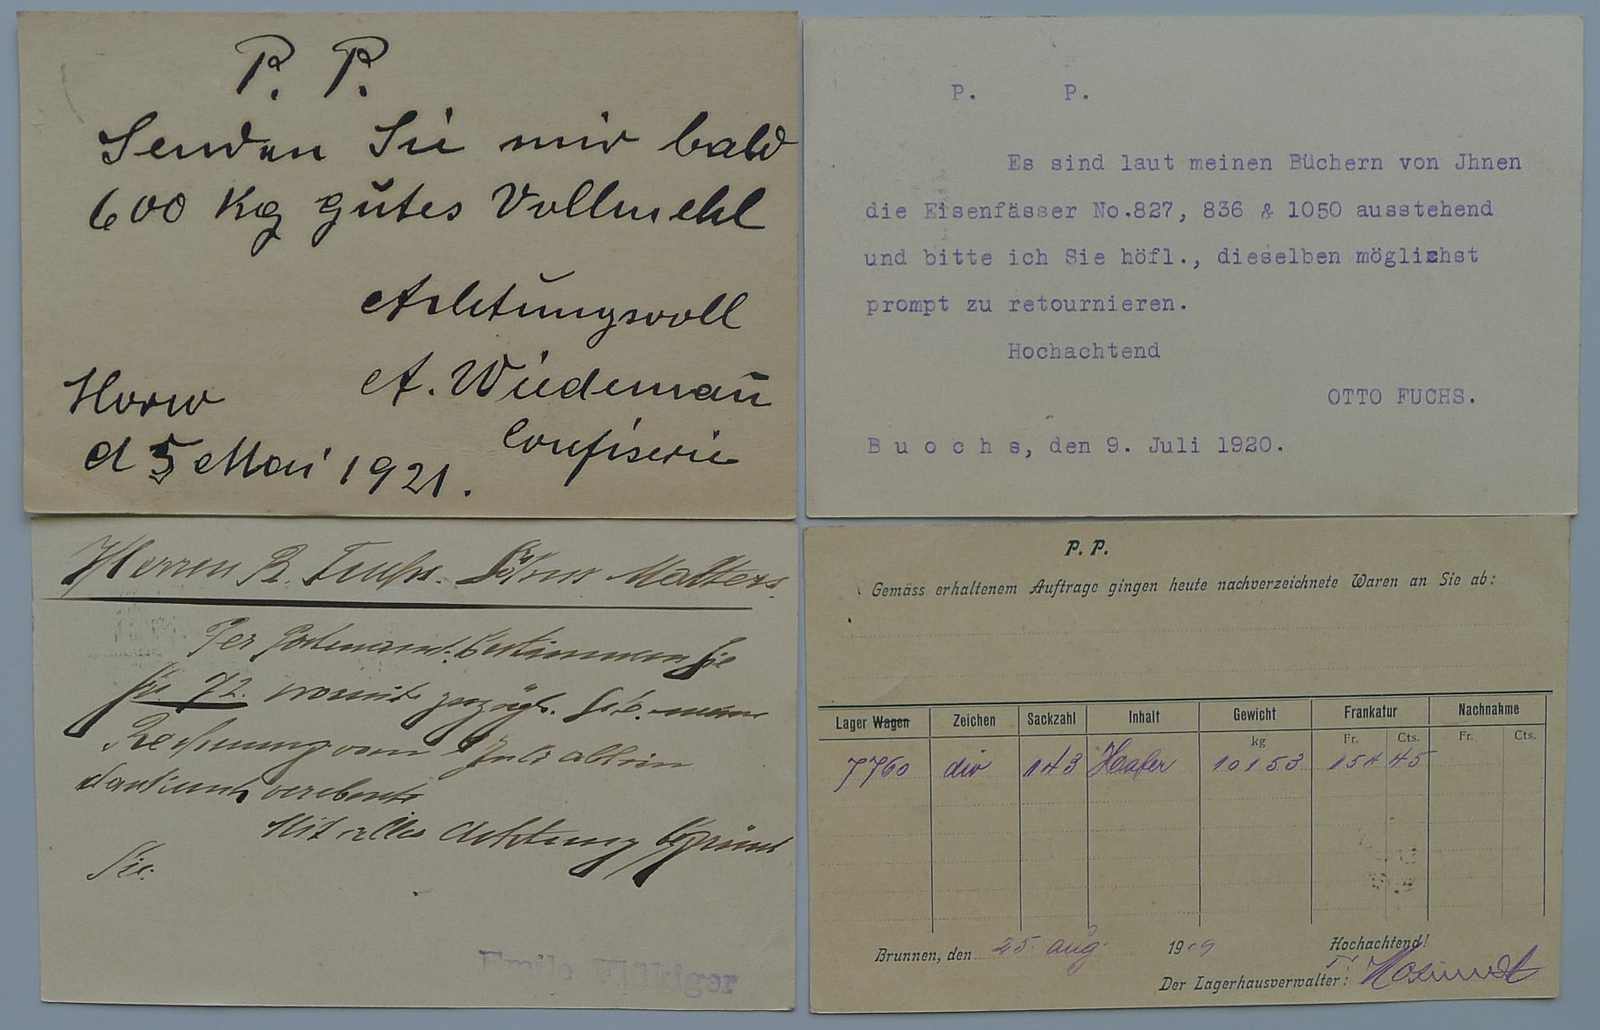 P. P.
Senden Sie mir bald
600 Kg gutes Vollmehl
Achtungsvoll
A. Wiedemann̄
Confiserie
Horw
d 5 Mai 1921.
P. P.
Es sind laut meinen Büchern von Jhnen
die Eisenfässer No.827, 836 & 1050 ausstehend
und bitte ich Sie höfl., dieselben möglichst
prompt zu retournieren.
Hochachtend
OTTO FUCHS.
Buochs, den 9. Juli 1920.
Herren R. Fuchs. Söhne Malters.
Per
Fr. 72. womit Sie meine
Rechnung vom Juli
Mit aller Achtung
Sie.
Emile
P. P.
Gemäss erhaltenem Auftrage gingen heute nachverzeichnete Waren an Sie ab:
Lager Wagen Zeichen Sackzahl Inhalt Gewicht Frankatur Nachnahme
kg Fr. Cts. Fr. Cts.
7760 div 143 Hafer 10153 151 45
Brunnen, den 25 Aug. 1909
Hochachtend!
Der Lagerhausverwalter: